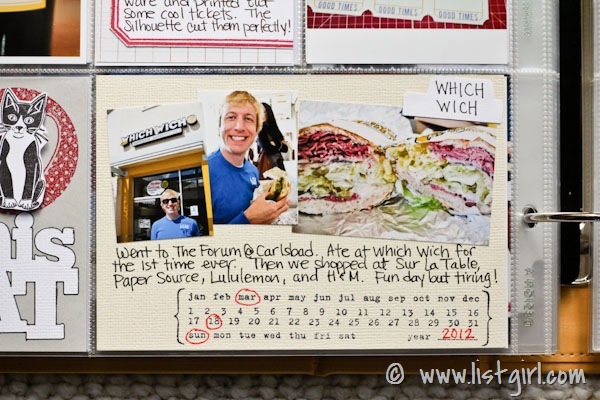 ware and printed out
some cool tickets. The
Silhouette cut them perfectly!
GOOD TIMES GOOD TIMES GOOD TIMES
WHICH
WICH
WHICH WICH
Went to The Forum @ Carlsbad. Ate at Which Wich for
the 1st time ever. Then we shopped at Sur La Table,
Paper Source, Lululemon, and H&M. Fun day but tiring!
jan feb mar apr may jun jul aug sep oct nov dec
1 2 3 4 5 6 7 8 9 10 11 12 13 14 15 16
17 18 19 20 21 22 23 24 25 26 27 28 29 30 31
sun mon tue wed thu fri sat year 2012
© www.listgirl.com